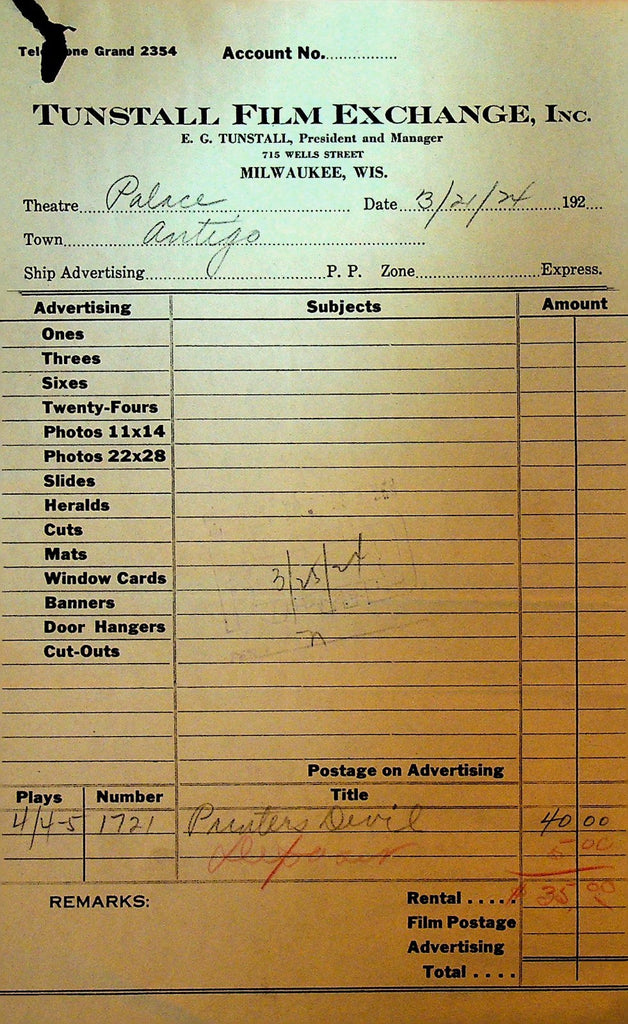 Telephone Grand 2354 Account No.
TUNSTALL FILM EXCHANGE, INC.
E. G. TUNSTALL, President and Manager
715 WELLS STREET
MILWAUKEE, WIS.
Theatre Palace Date 3/21/24 192
Town Antigo
Ship Advertising P. P. Zone Express.
Advertising Subjects Amount
Ones
Threes
Sixes
Twenty-Fours
Photos 11x14
Photos 22x28
Slides
Heralds
Cuts
Mats
Window Cards 3/25/24
Banners
Door Hangers
Cut-Outs
Postage on Advertising
Plays Number Title
4/4-5 1721 Printers Devil 40 00
5 00
REMARKS: Rental . . . . . $ 35 00
Film Postage
Advertising
Total . . . .